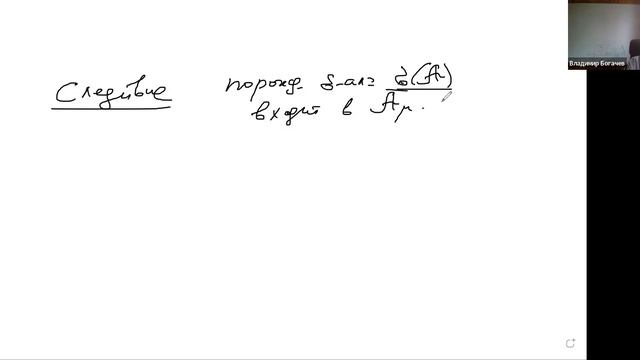 Следствие
порожд. σ-алг σ(A)
входит в Aμ.
Владимир Богачев